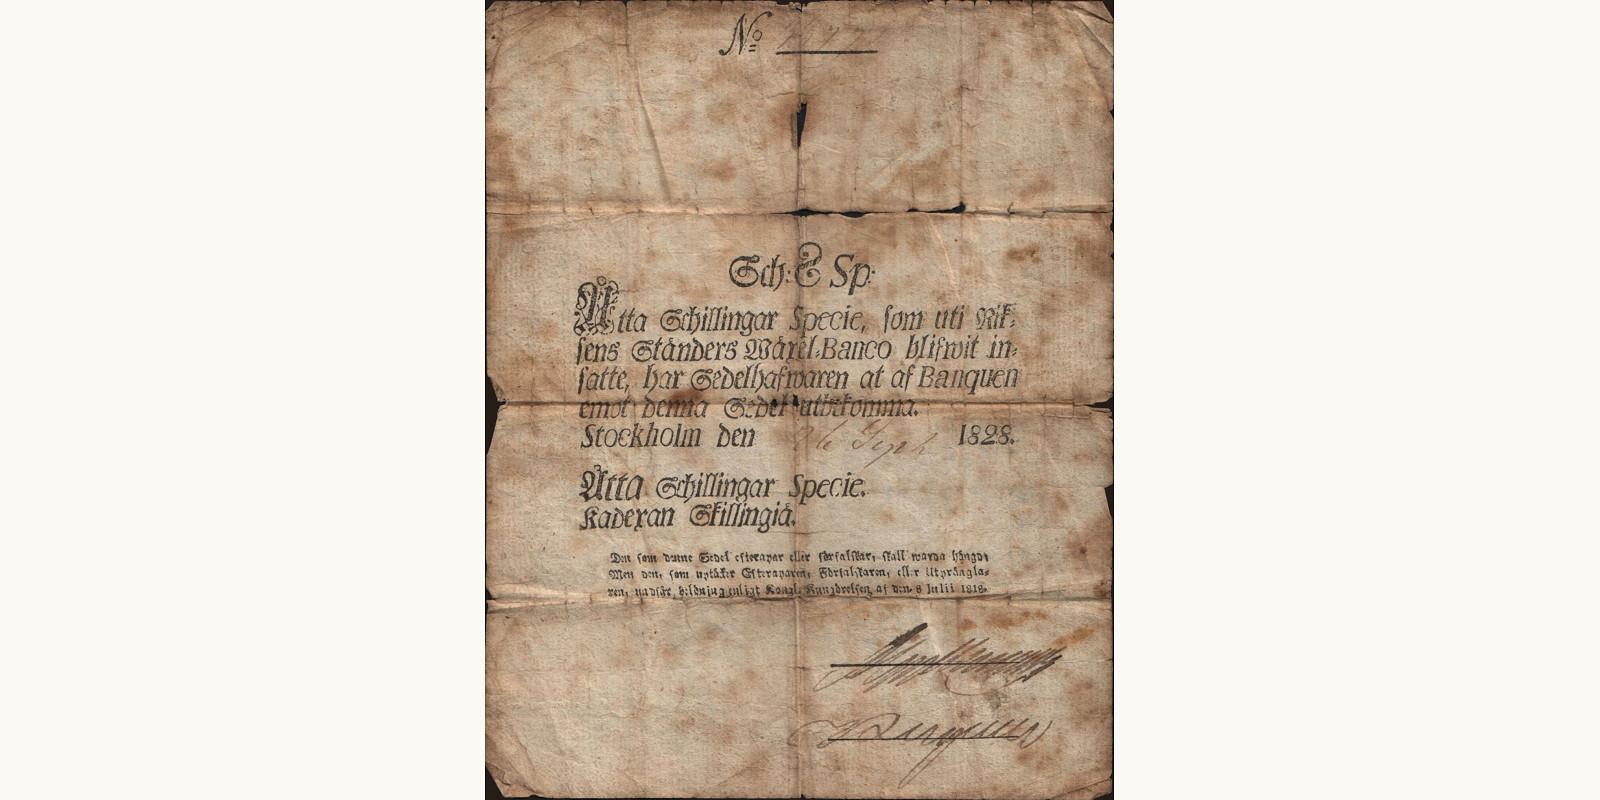 No
Sch: 8 Sp:
Åtta Schillingar Specie, som uti Rik-
sens Ständers Wäxel-Banco blifwit in-
satte, har Sedelhafwaren at af Banquen
emot denna Sedel utbekomma.
Stockholm den 26 Sept 1828.
Åtta Schillingar Specie.
Kadexan Skillingiä.
Den som denne Sedel efterapar eller förfalskar, skall warda hängd;
Men den, som uptäker Efteraparen, Förfalskaren, eller Utprångla-
ren, undfår belöning enligt Kongl. Kungörelsen af den 8 Julii 1818.